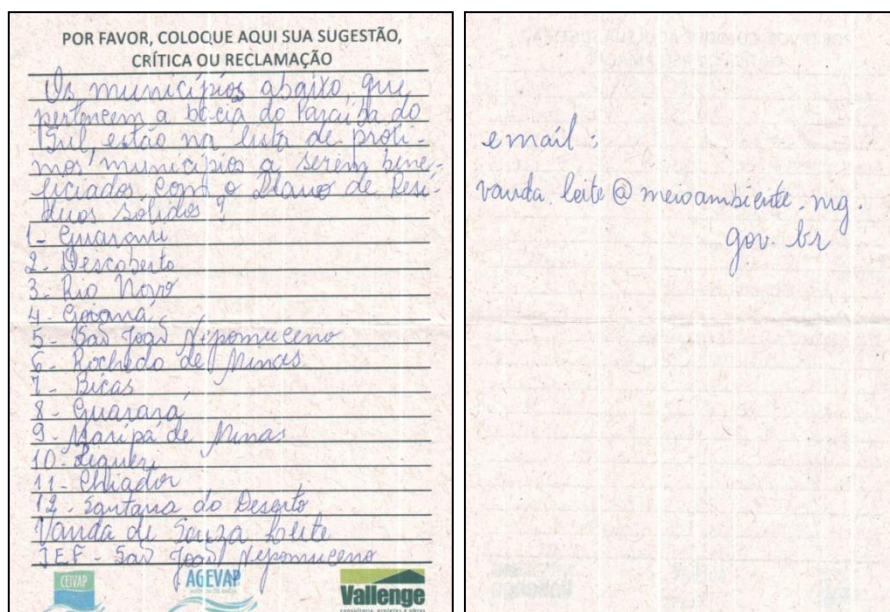 POR FAVOR, COLOQUE AQUI SUA SUGESTÃO,
CRÍTICA OU RECLAMAÇÃO
Os municípios abaixo, que
pertencem a bacia do Paraíba do
Sul, estão na lista de próxi-
mos municípios a serem bene-
ficiados com o Plano de Resí-
duos Sólidos?
1- Guarani
2- Descoberto
3- Rio Novo
4- Goianá
5- São João Nepomuceno
6- Rochedo de Minas
7- Bicas
8- Guarará
9- Maripá de Minas
10- Pequeri
11- Chiador
12- Santana do Deserto
Vanda de Souza Leite
IEF - São João Nepomuceno
CEIVAP
AGEVAP
Vallenge
consultoria, projetos e obras
email:
vanda.leite@meioambiente.mg.
gov.br